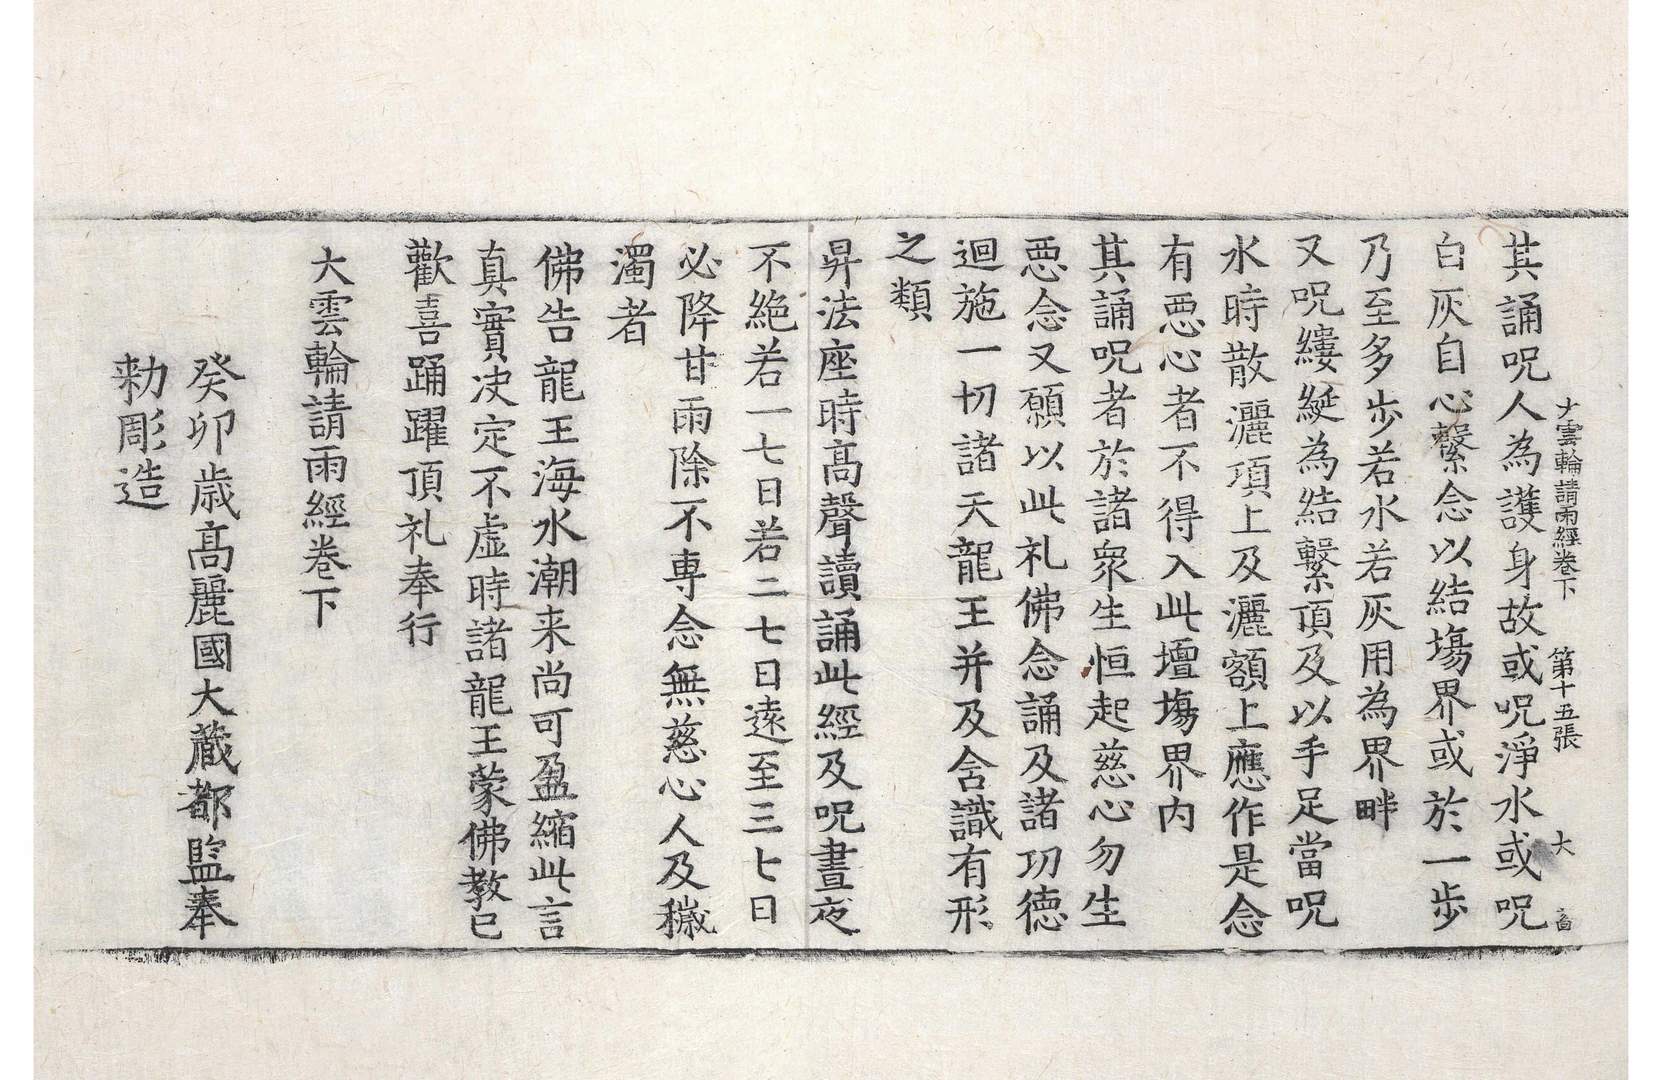 大雲輪請雨經卷下 第十五張 大
其誦呪人為護身故或呪淨水或呪
白灰自心繫念以結塲界或於一步
乃至多步若水若灰用為界畔
又呪縷綖為結繫頂及以手足當呪
水時散灑項上及灑額上應作是念
有悪心者不得入此壇塲界內
其誦呪者於諸衆生恒起慈心勿生
悪念又願以此礼佛念誦及諸功德
迴施一切諸天龍王并及含識有形
之類
昇法座時髙聲讀誦此經及呪晝夜
不絶若一七日若二七日遠至三七日
必降甘雨除不專念無慈心人及穢
濁者
佛告龍王海水潮来尚可盈縮此言
真實决定不虛時諸龍王蒙佛教已
歡喜踊躍頂礼奉行
大雲輪請雨經卷下
癸卯歳髙麗國大藏都監奉
勑彫造